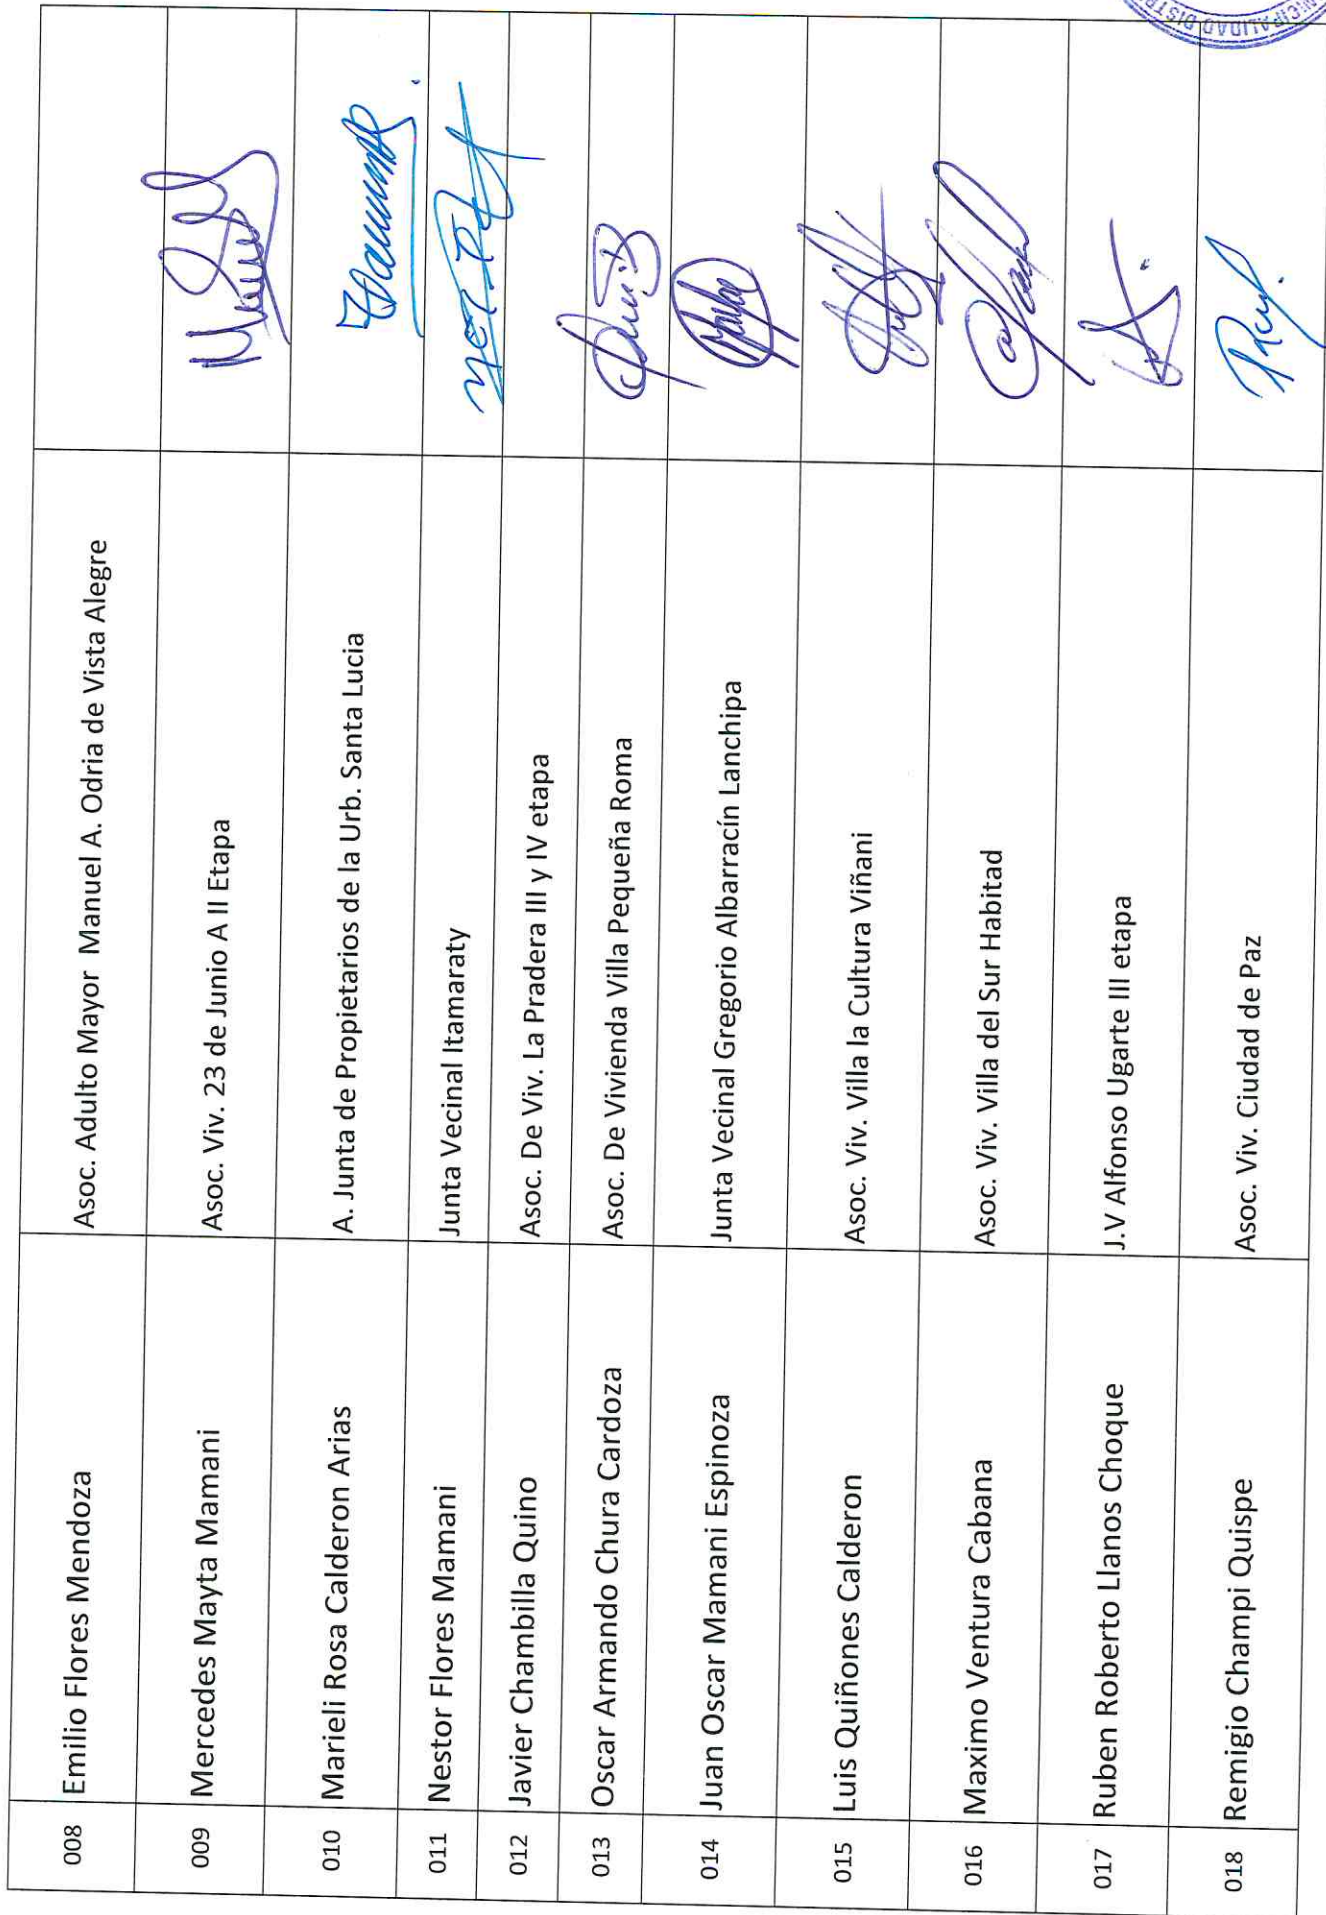 008 Emilio Flores Mendoza Asoc. Adulto Mayor Manuel A. Odria de Vista Alegre
009 Mercedes Mayta Mamani Asoc. Viv. 23 de Junio A II Etapa
010 Marieli Rosa Calderon Arias A. Junta de Propietarios de la Urb. Santa Lucia
011 Nestor Flores Mamani Junta Vecinal Itamaraty
012 Javier Chambilla Quino Asoc. De Viv. La Pradera III y IV etapa
013 Oscar Armando Chura Cardoza Asoc. De Vivienda Villa Pequeña Roma
014 Juan Oscar Mamani Espinoza Junta Vecinal Gregorio Albarracín Lanchipa
015 Luis Quiñones Calderon Asoc. Viv. Villa la Cultura Viñani
016 Maximo Ventura Cabana Asoc. Viv. Villa del Sur Habitad
017 Ruben Roberto Llanos Choque J.V Alfonso Ugarte III etapa
018 Remigio Champi Quispe Asoc. Viv. Ciudad de Paz